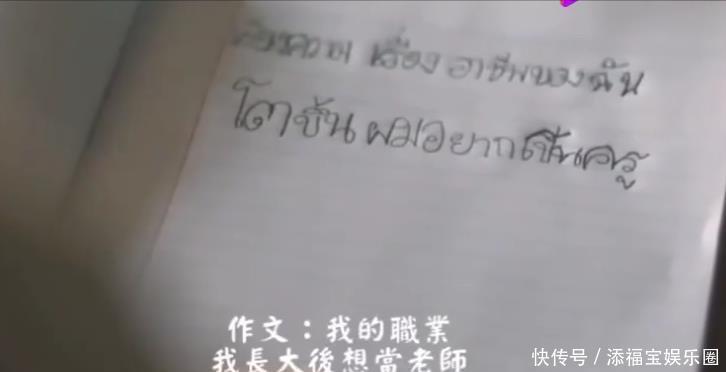 เรียงความ เรื่อง อาชีพของฉัน
โตขึ้น ผมอยากเป็นครู
作文：我的職業
我長大後想當老師
快传号／添福宝娱乐圈